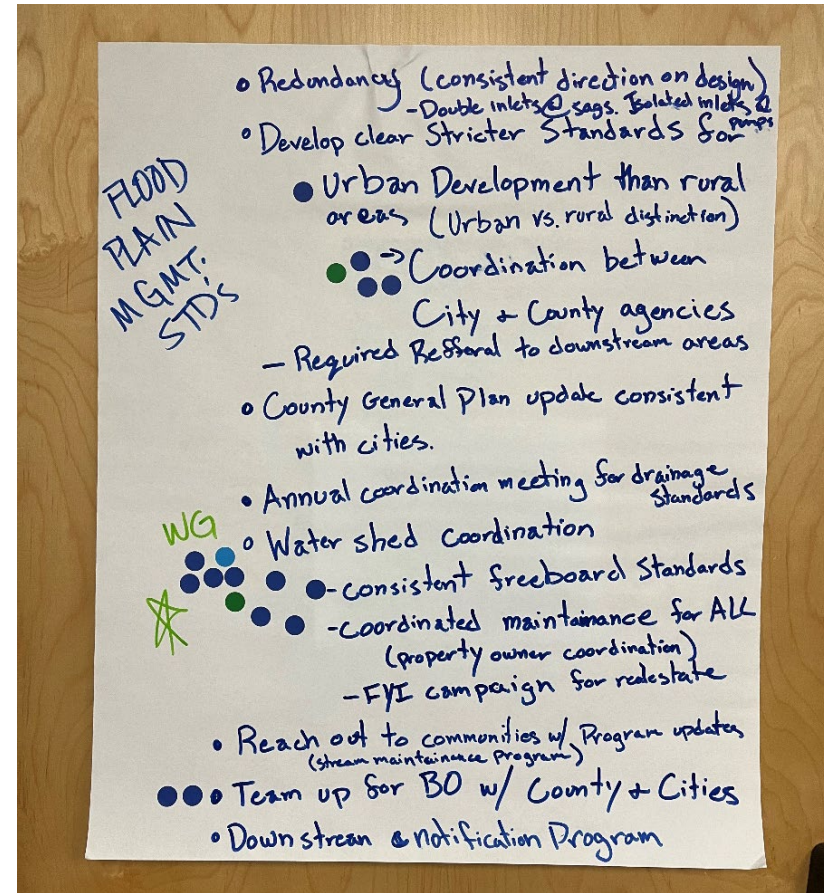 FLOOD
PLAIN
MGMT.
STD's
• Redundancy (consistent direction on design)
- Double inlets @ sags. Isolated inlets @
pumps
• Develop clear Stricter Standards for
Urban Development than rural
areas (Urban vs. rural distinction)
→ Coordination between
City & County agencies
- Required Refferal to downstream areas
• County General Plan update consistent
with cities.
• Annual coordination meeting for drainage
Standards
WG
• Water shed Coordination
- consistent freeboard Standards
- coordinated maintainance for ALL
(property owner coordination)
- FYI campaign for realestate
• Reach out to communities w/ Program updates
(stream maintainance Program)
• Team up for BO w/ County & Cities
• Down stream notification Program